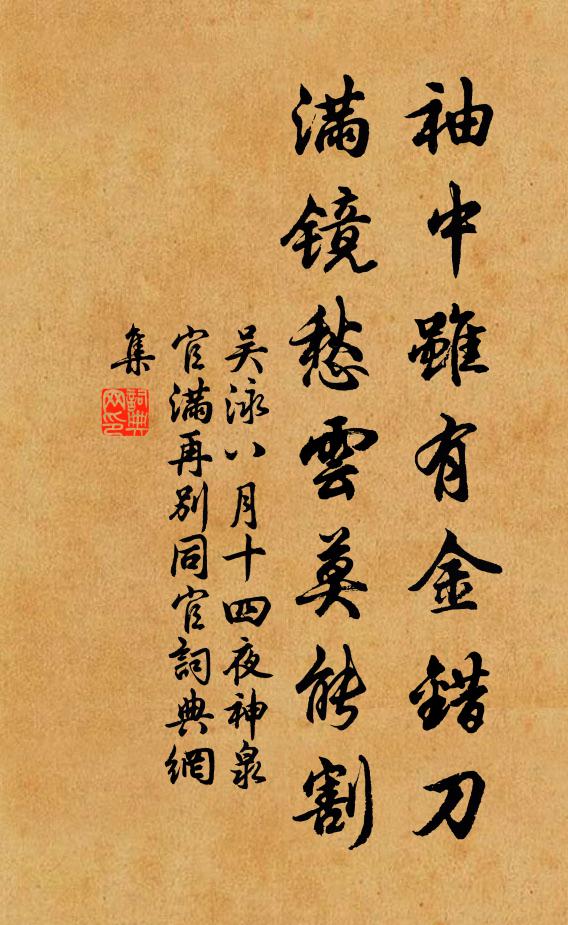 袖中雖有金錯刀
滿鏡愁雲莫能割
吴泳八月十四夜神泉
官滿再别同官詞典網
集
詞典
网印